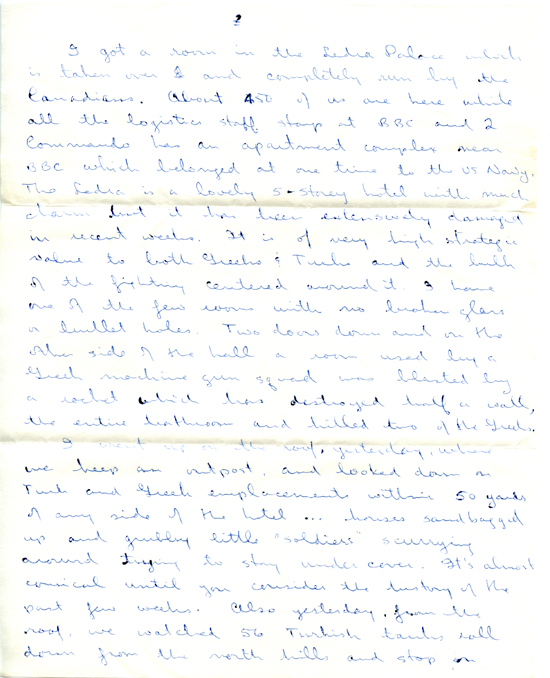 2
I got a room in the Ledra Palace which
is taken over & and completely run by the
Canadians. About 450 of us are here while
all the logistics staff stays at BBC and 2
Commando has an apartment complex near
BBC which belonged at one time to the US Navy.
The Ledra is a lovely 5-storey hotel with much
charm but it has been extensively damaged
in recent weeks. It is of very high strategic
value to both Greeks & Turks and the bulk
of the fighting centered around it. I have
one of the few rooms with no broken glass
or bullet holes. Two doors down and on the
other side of the hall a room used by a
Greek machine gun squad was blasted by
a rocket which has destroyed half a wall,
the entire bathroom and killed two of the Greeks.
I went up on the roof, yesterday, where
we keep an outpost, and looked down on
Turk and Greek emplacements within 50 yards
of any side of the hotel ... houses sandbagged
up and grubby little "soldiers" scurrying
around trying to stay under cover. It's almost
comical until you consider the history of the
past few weeks. Also yesterday, from the
roof, we watched 56 Turkish tanks roll
down from the north hills and stop on